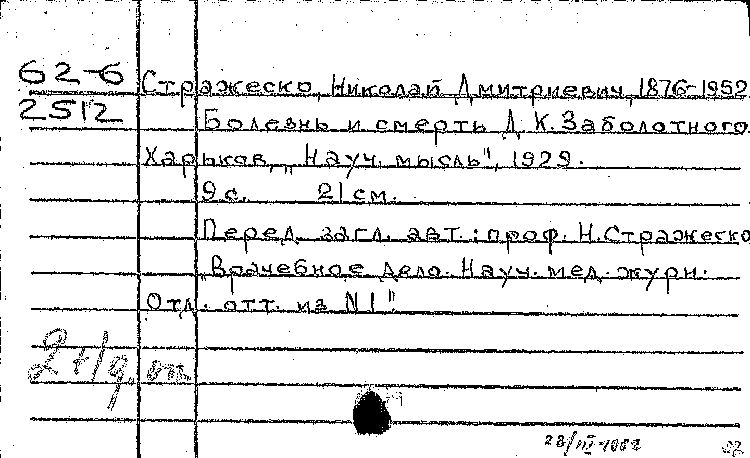 62-6
2512
Стражеско, Николай Дмитриевич, 1876-1952
Болезнь и смерть Д.К. Заболотного.
Харьков, „Науч. мысль", 1929.
9 с. 21 см.
Перед загл. авт.: проф. Н. Стражеско
„Врачебное дело. Науч. мед. журн.
Отд. отт. из N 1".
28/III-1962